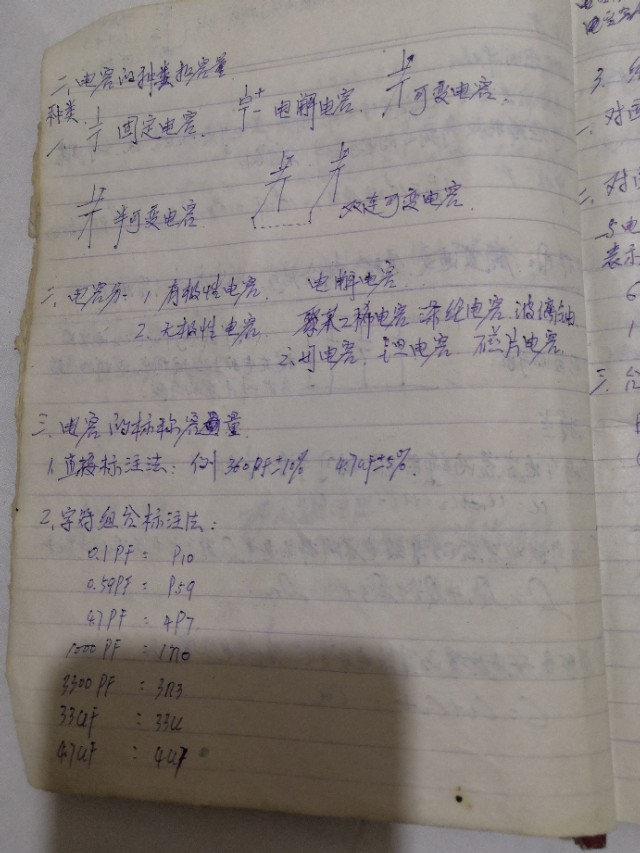 二、电容的种类和容量
种类.
一、 固定电容. 电解电容. 可变电容.
半可变电容 双连可变电容.
二、电容分 1. 有极性电容. 电解电容.
2. 无极性电容 聚苯乙稀电容 涤纶电容 玻璃釉
云母电容. 钽电容. 磁片电容.
三、电容的标称容量
1. 直接标注法: 例 360PF±10% 4.7uf±5%.
2. 字符组合标注法:
0.1PF = P10
0.59PF = P59
4.7PF = 4P7
1000PF = 1n0
3300PF = 3n3
33uF = 33u
4.7uF = 4u7
3.
一、对
二、对
与电
表示
6
1
三、